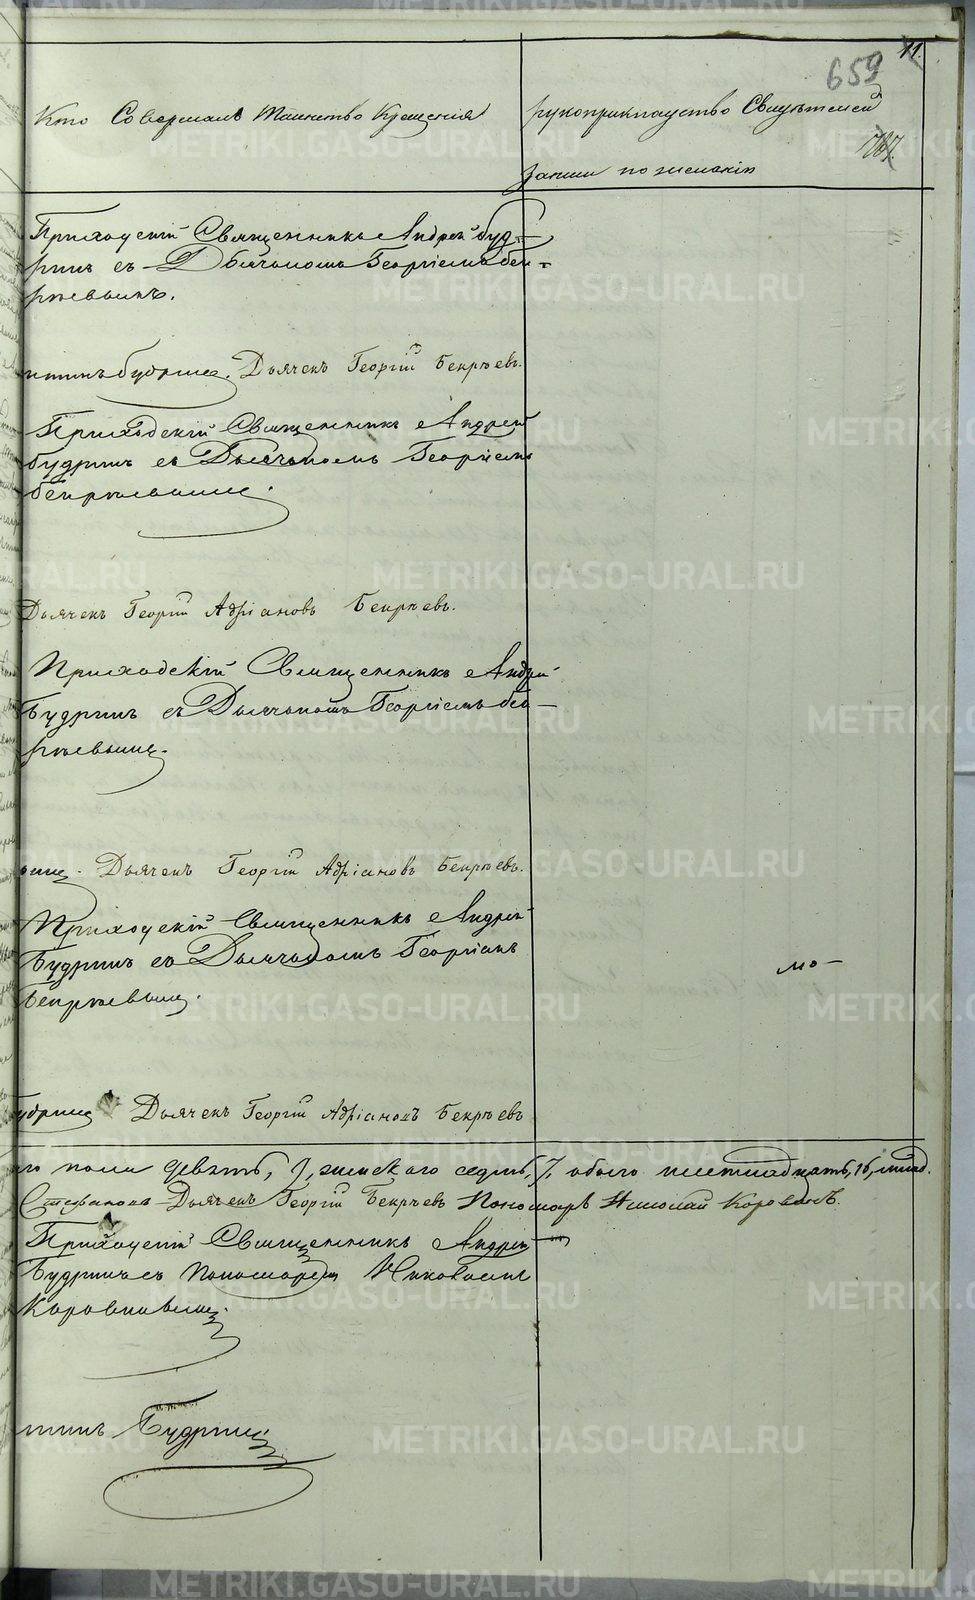 659
11.
Кто Совершалъ Таинство Крещенія
рукоприкладство Свидѣтелей
записи по желанію
Приходскій Священникъ Андрей Буд-
ринъ съ Дьячкомъ Георгіемъ Бек-
рѣевымъ.
Будринъ. Дьячекъ Георгій Бекрѣевъ.
Приходскій Священникъ Андрей
Будринъ съ Дьячкомъ Георгіемъ
Бекрѣевымъ.
Дьячекъ Георгій Адріановъ Бекрѣевъ.
Приходскій Священникъ Андрей
Будринъ съ Дьячкомъ Георгіемъ Бек-
рѣевымъ.
Дьячекъ Георгій Адріановъ Бекрѣевъ.
Приходскій Священникъ Андрей
Будринъ съ Дьячкомъ Георгіемъ
Бекрѣевымъ.
мо-
Дьячекъ Георгій Адріановъ Бекрѣевъ
пола девять, 9, женскаго седмь, 7, обоего шестнадцать, 16,
Стефановъ Дьячекъ Георгій Бекрѣевъ Пономарь Николай Коровинъ.
Приходскій Священникъ Андрей
Будринъ съ Пономаремъ Николаемъ
Коровинымъ.
Будринъ
METRIKI.GASO-URAL.RU